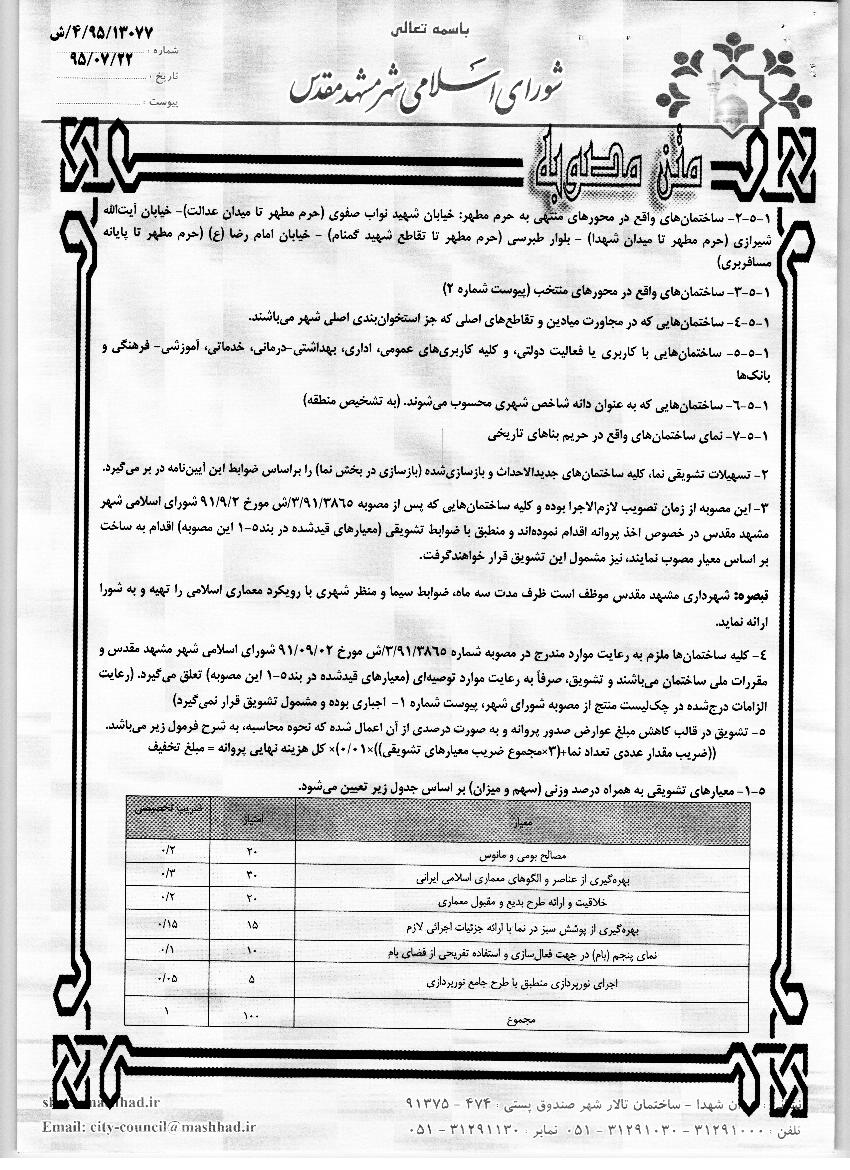 باسمه تعالی
شماره : ۴/۹۵/۱۳۰۷۷/ش
تاریخ : ۹۵/۰۷/۲۲
پیوست :
شورای اسلامی شهر مشهد مقدس
متن مصوبه
۱-۵-۲- ساختمان‌های واقع در محورهای منتهی به حرم مطهر: خیابان شهید نواب صفوی (حرم مطهر تا میدان عدالت)- خیابان آیت‌الله
شیرازی (حرم مطهر تا میدان شهدا) - بلوار طبرسی (حرم مطهر تا تقاطع شهید گمنام) - خیابان امام رضا (ع) (حرم مطهر تا پایانه
مسافربری)
۱-۵-۳- ساختمان‌های واقع در محورهای منتخب (پیوست شماره ۲)
۱-۵-۴- ساختمان‌هایی که در مجاورت میادین و تقاطع‌های اصلی که جز استخوان‌بندی اصلی شهر می‌باشند.
۱-۵-۵- ساختمان‌هایی با کاربری یا فعالیت دولتی، و کلیه کاربری‌های عمومی، اداری، بهداشتی-درمانی، خدماتی، آموزشی- فرهنگی و
بانک‌ها
۱-۵-۶- ساختمان‌هایی که به عنوان دانه شاخص شهری محسوب می‌شوند. (به تشخیص منطقه)
۱-۵-۷- نمای ساختمان‌های واقع در حریم بناهای تاریخی
۲- تسهیلات تشویقی نما، کلیه ساختمان‌های جدیدالاحداث و بازسازی‌شده (بازسازی در بخش نما) را براساس ضوابط این آیین‌نامه در بر می‌گیرد.
۳- این مصوبه از زمان تصویب لازم‌الاجرا بوده و کلیه ساختمان‌هایی که پس از مصوبه ۳/۹۱/۳۸۶۵/ش مورخ ۹۱/۹/۲ شورای اسلامی شهر
مشهد مقدس در خصوص اخذ پروانه اقدام نموده‌اند و منطبق با ضوابط تشویقی (معیارهای قیدشده در بند۵-۱ این مصوبه) اقدام به ساخت
بر اساس معیار مصوب نمایند، نیز مشمول این تشویق قرار خواهندگرفت.
تبصره: شهرداری مشهد مقدس موظف است ظرف مدت سه ماه، ضوابط سیما و منظر شهری با رویکرد معماری اسلامی را تهیه و به شورا
ارائه نماید.
۴- کلیه ساختمان‌ها ملزم به رعایت موارد مندرج در مصوبه شماره ۳/۹۱/۳۸۶۵/ش مورخ ۹۱/۰۹/۰۲ شورای اسلامی شهر مشهد مقدس و
مقررات ملی ساختمان می‌باشند و تشویق، صرفاً به رعایت موارد توصیه‌ای (معیارهای قیدشده در بند۵-۱ این مصوبه) تعلق می‌گیرد. (رعایت
الزامات درج‌شده در چک‌لیست منتج از مصوبه شورای شهر، پیوست شماره ۱- اجباری بوده و مشمول تشویق قرار نمی‌گیرد)
۵- تشویق در قالب کاهش مبلغ عوارض صدور پروانه و به صورت درصدی از آن اعمال شده که نحوه محاسبه، به شرح فرمول زیر می‌باشد.
((ضریب مقدار عددی تعداد نما+(۳×مجموع ضریب معیارهای تشویقی))×۰/۰۱)× کل هزینه نهایی پروانه = مبلغ تخفیف
۵-۱- معیارهای تشویقی به همراه درصد وزنی (سهم و میزان) بر اساس جدول زیر تعیین می‌شود.
معیار امتیاز ضریب تخصیصی
مصالح بومی و مانوس ۲۰ ۰/۲
بهره‌گیری از عناصر و الگوهای معماری اسلامی ایرانی ۳۰ ۰/۳
خلاقیت و ارائه طرح بدیع و مقبول معماری ۲۰ ۰/۲
بهره‌گیری از پوشش سبز در نما با ارائه جزئیات اجرائی لازم ۱۵ ۰/۱۵
نمای پنجم (بام) در جهت فعال‌سازی و استفاده تفریحی از فضای بام ۱۰ ۰/۱
اجرای نورپردازی منطبق با طرح جامع نورپردازی ۵ ۰/۰۵
مجموع ۱۰۰ ۱
شهدا - ساختمان تالار شهر صندوق پستی : ۴۷۴ - ۹۱۳۷۵
تلفن : ۳۱۲۹۱۰۰۰ - ۳۱۲۹۱۰۳۰ - ۰۵۱ نمابر : ۳۱۲۹۱۱۳۰ - ۰۵۱
Email: city-council@mashhad.ir